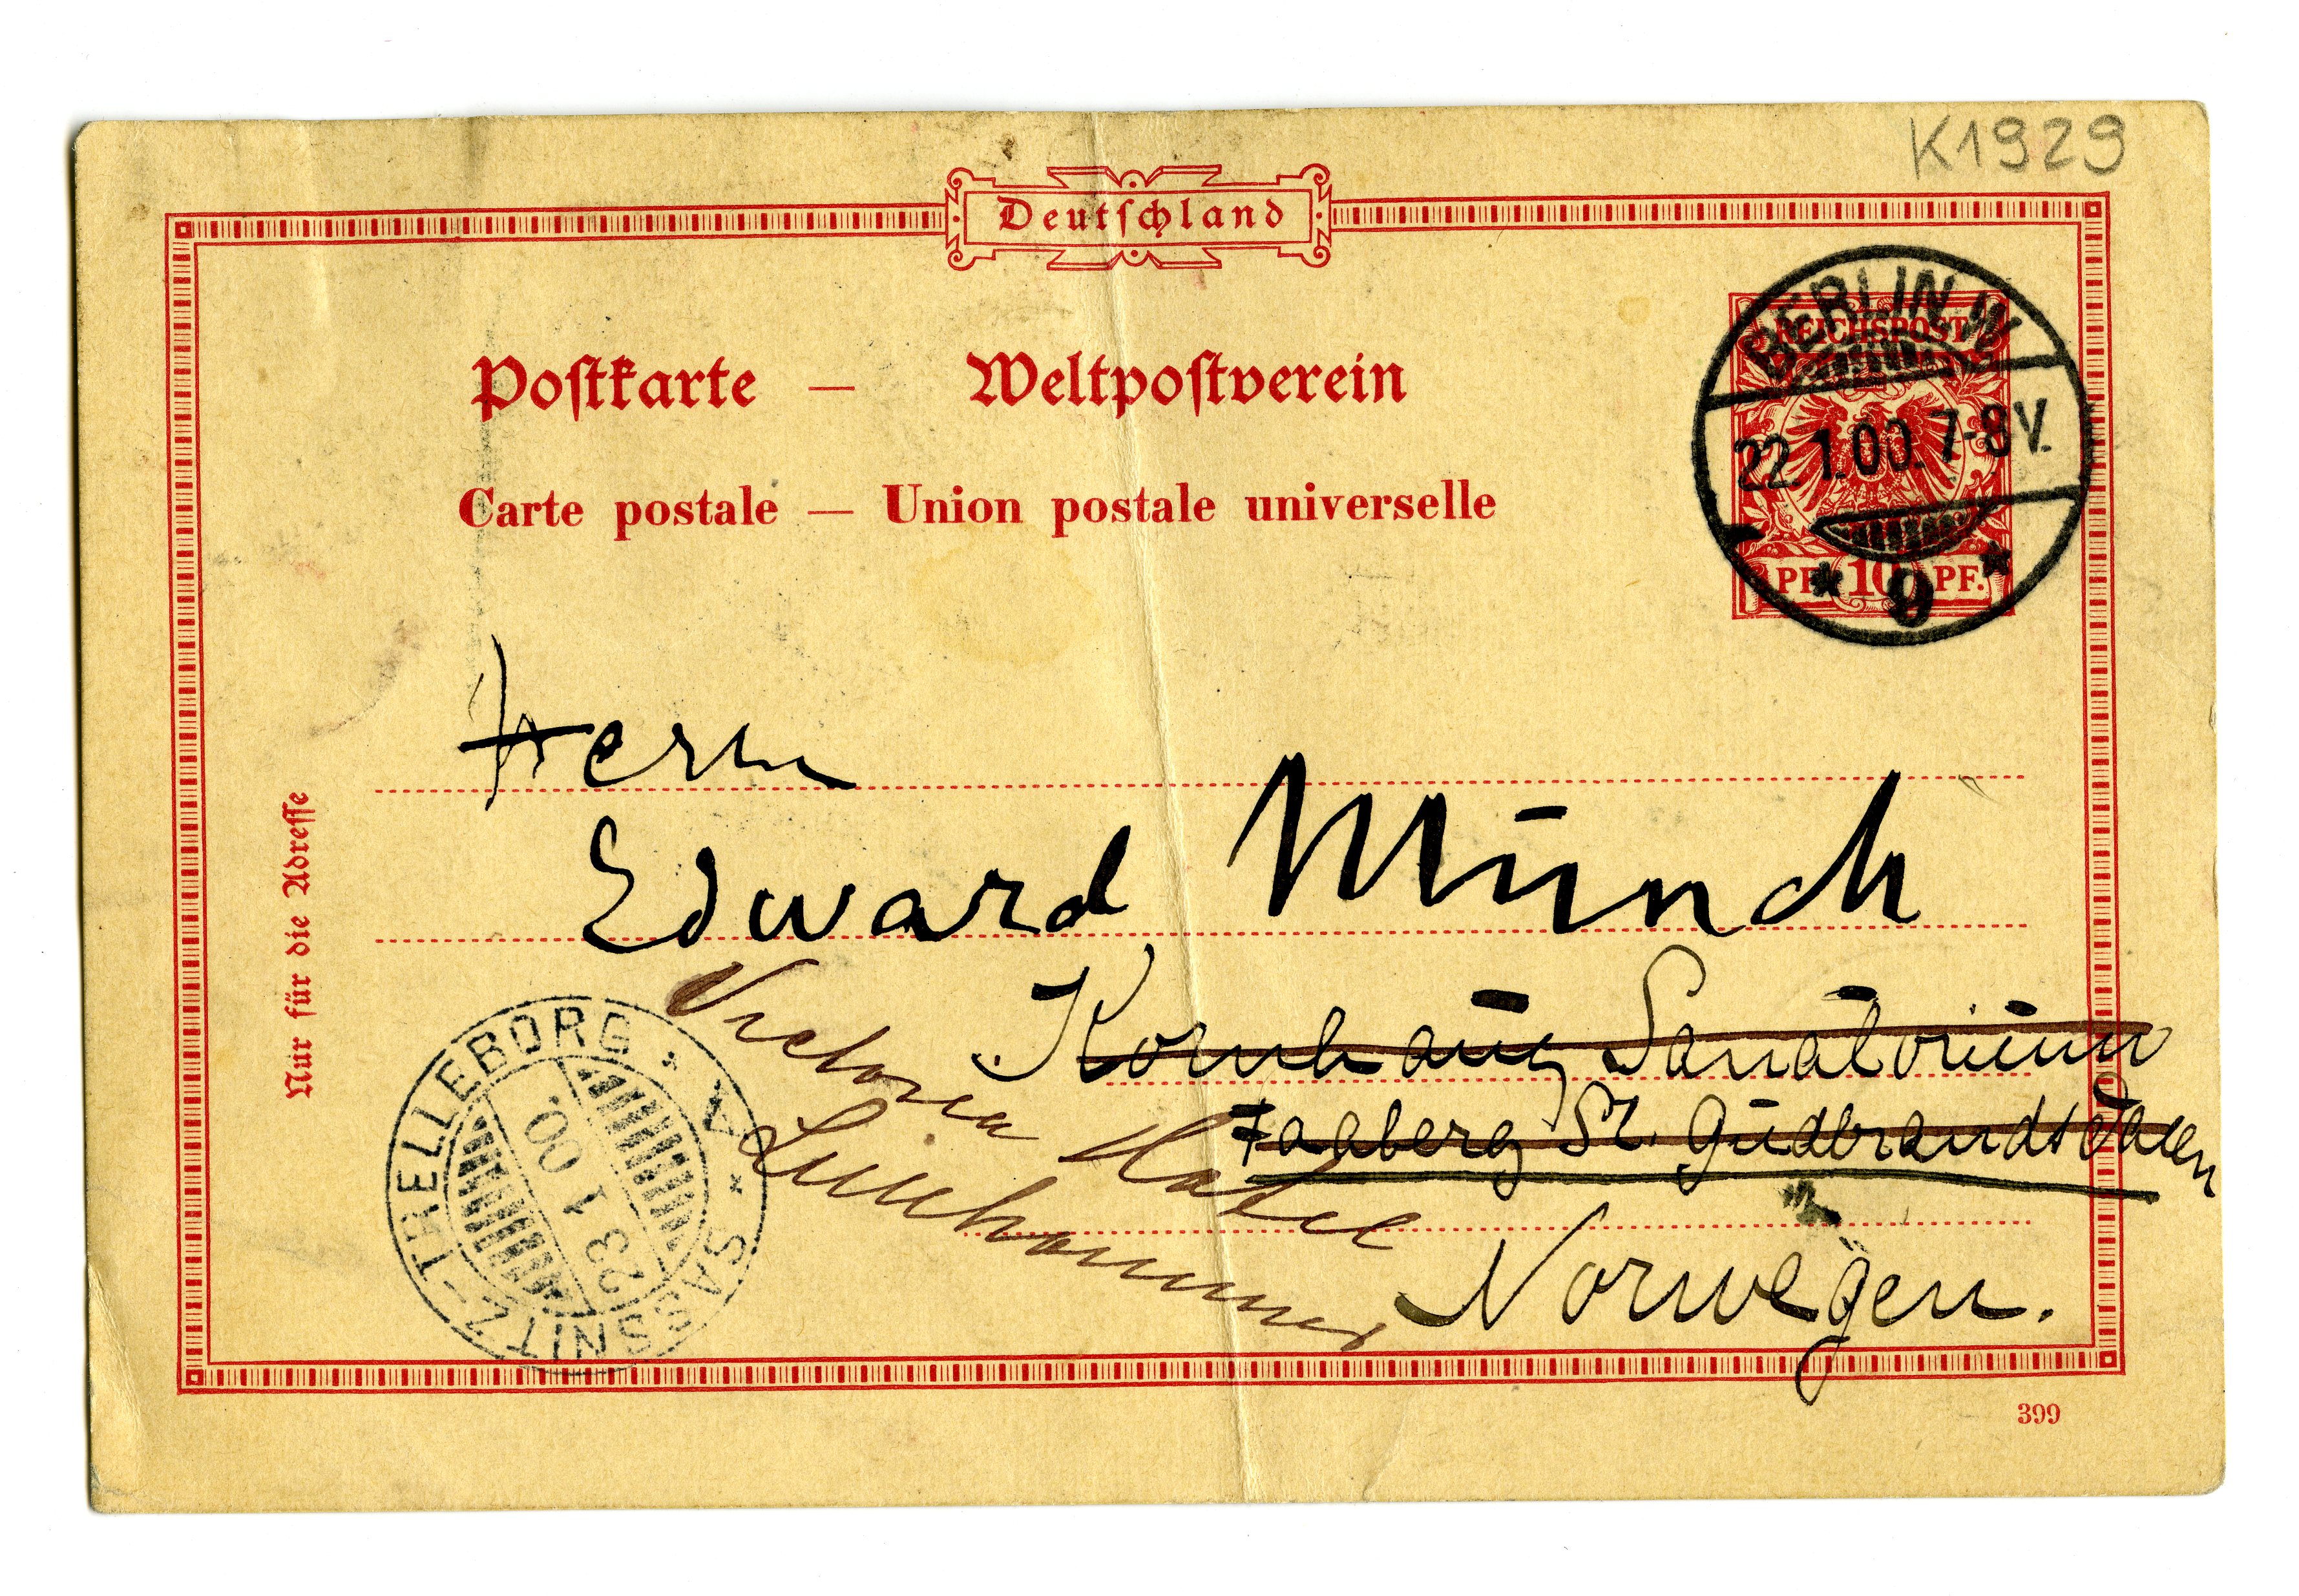 K1929
Deutschland
Postkarte — Weltpostverein
Carte postale — Union postale universelle
REICHSPOST
PF. 10 PF.
BERLIN.W
22.1.00.7-8V.
* 9 *
Nur für die Adresse
Herrn
Edward Münch
Kornhaug Sanatorium
Faaberg St. Gudbrandsdalen
Norwegen.
Victoria Hotel
Lillehammer
SASSNITZ-TRELLEBORG * A *
23 1 00.
399